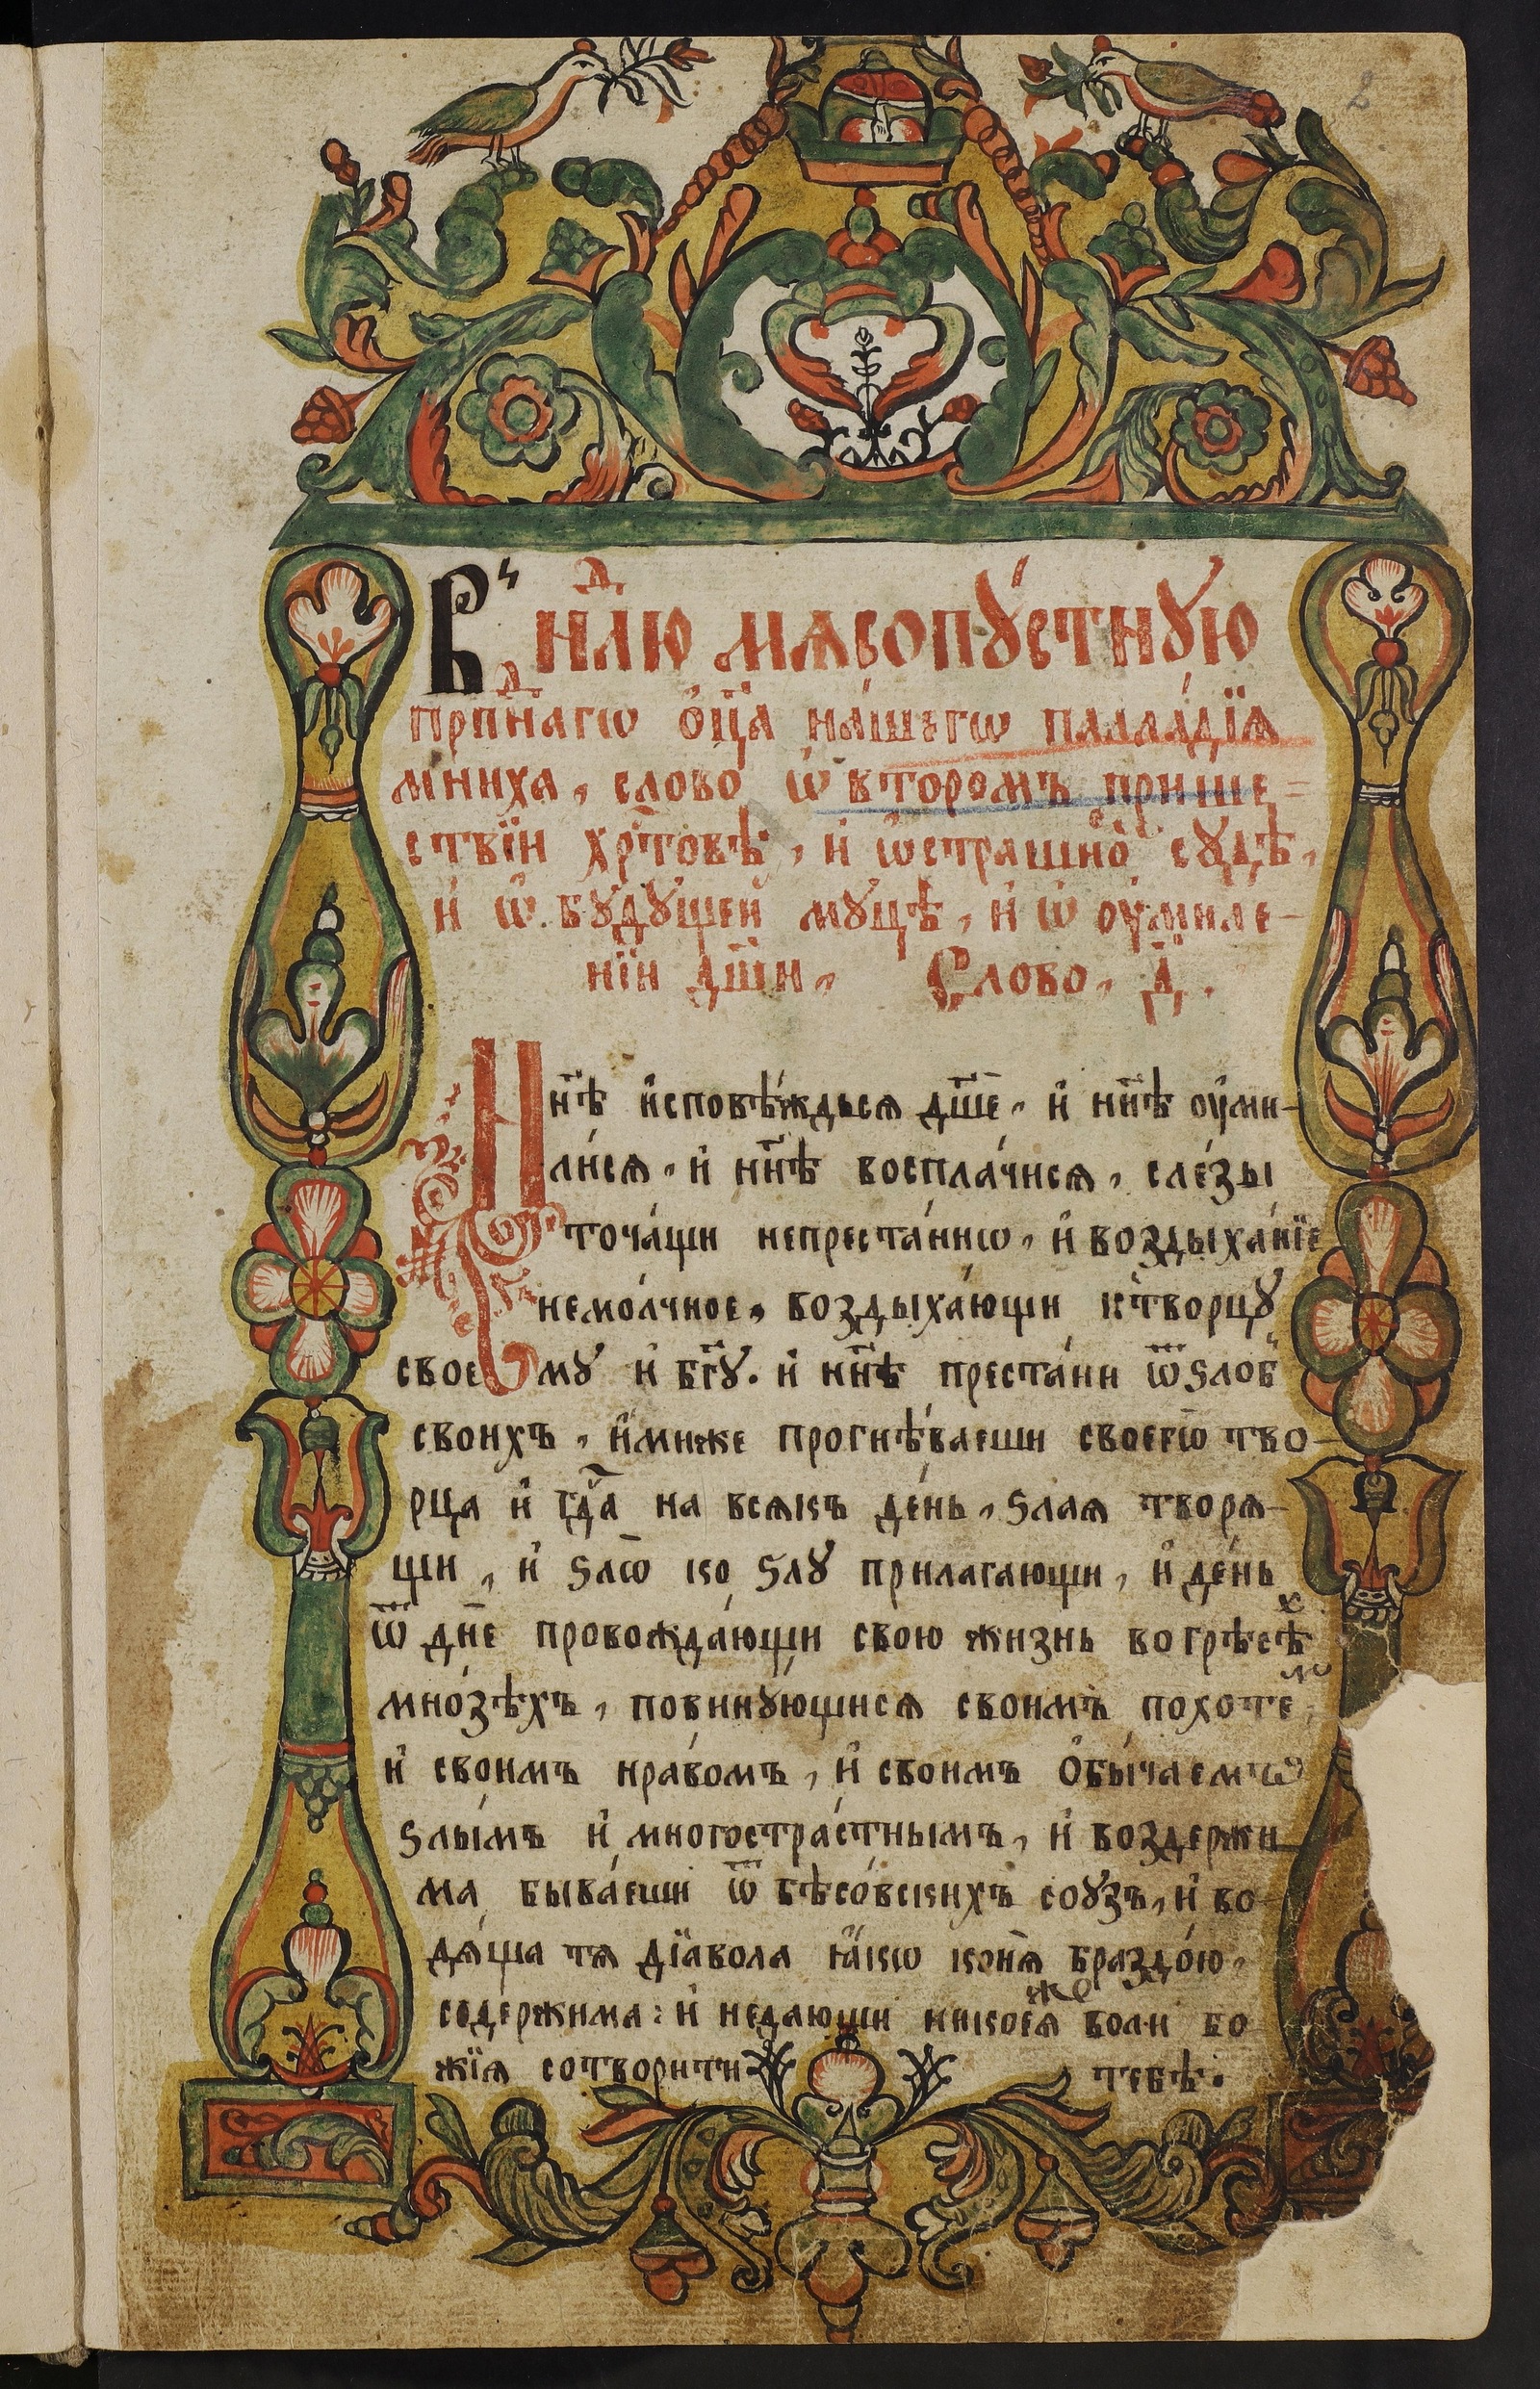 2
В̾ нⷣлю мѧсопꙋ́стнꙋю
прпⷣнагѡ ѻ҆ц҃а на́шегѡ палла́дїѧ
мниха, слово ѡ҆ второмъ прише=
ствїи хрⷭ҇товѣ, и҆ ѡ҆ страшно́ⷨ сꙋдѣ,
и҆ ѡ҆ бꙋдꙋщей мꙋцѣ, и҆ ѡ҆ оумиле-
нїи дш҃и, Слово, д҃.
Нн҃ѣ и҆сповѣ́ждьсѧ дш҃е, и҆ нн҃ѣ оу҆ми-
ли́сѧ, и҆ нн҃ѣ воспла́чисѧ, сле́зы
точа́щи непреста́ннѡ, и҆ воздыха́нїе
немо́лчное, воздыха́ющи к̾творцꙋ
своемꙋ и҆ бг҃ꙋ. и҆ нн҃ѣ преста́ни ѿ ѕлоб̾
своихъ, и҆миже прогнѣ́ваеши своегѡ̀ тво-
рца и҆ гдⷭ҇а на всѧкъ де́нь, ѕлаѧ творѧ-
щи, и҆ ѕлѡ̀ ко ѕлꙋ прилагающи, и҆ де́нь
ѿ дн҃е провожда́ющи свою жизнь во грѣсѣ́ⷯ
мно́зѣхъ, повинꙋ́ющисѧ своимъ похоте́ⷨ,
и҆ своимъ нра́вомъ, и҆ своимъ ѻ҆бы́чаемъ
ѕлы́мъ и҆ многостра́стнымъ, и҆ воздержи-
ма быва́еши ѿ бѣсо́вскихъ соузъ, и҆ во-
дѧ́ща тѧ дїавола ꙗ҆́кѡ конѧ̀ браздо́ю,
содержима: и҆ недающи никоеѧ́ⷤ воли бо
жїѧ сотворити тебѣ.